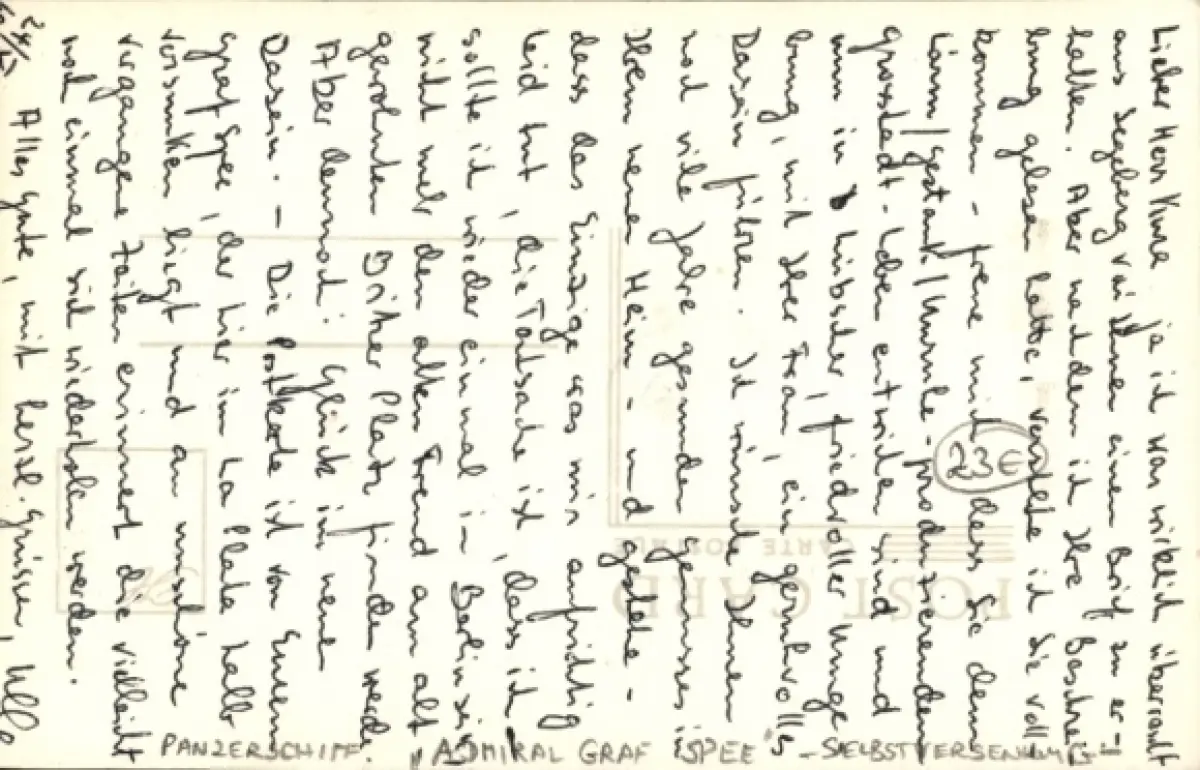 Lieber Herr Vinne, ja ich war wirklich überrascht
aus Segeberg von Ihnen einen Brief zu er-
halten. Aber nachdem ich Ihre Beschrei-
bung gelesen hatte, verstehe ich Sie voll-
kommen - freue mich dass Sie dem
Lärm/gestank/Unruhe-produzierenden
Grosstadt-Leben entwichen sind und
nun in hübscher, friedvoller Umge-
bung, mit Ihrer Frau, ein geruhvolles
Dasein führen. Ich wünsche Ihnen
noch viele Jahre gesunden geniesses in
Ihrem neuen Heim - und gestehe -
dass das Einzige was mir aufrichtig
leid tut, die Tatsache ist, dass ich,
sollte ich wieder einmal in Berlin sein,
nicht mehr den alten Freund am alt-
gewohnten Platz finden werde.
Aber dennoch: Glück im neuen
Dasein. - Die Postkarte ist von Eurem
Graf Spee, der hier im La Plata halb
versunken liegt und an unschöne
vergangene Zeiten erinnert die vielleicht
noch einmal sich wiederholen werden.
Alles Gute, mit herzl. Grüssen,
23€
POST CARD
CARTE POSTALE
PANZERSCHIFF "ADMIRAL GRAF SPEE" - SELBSTVERSENKUNG -